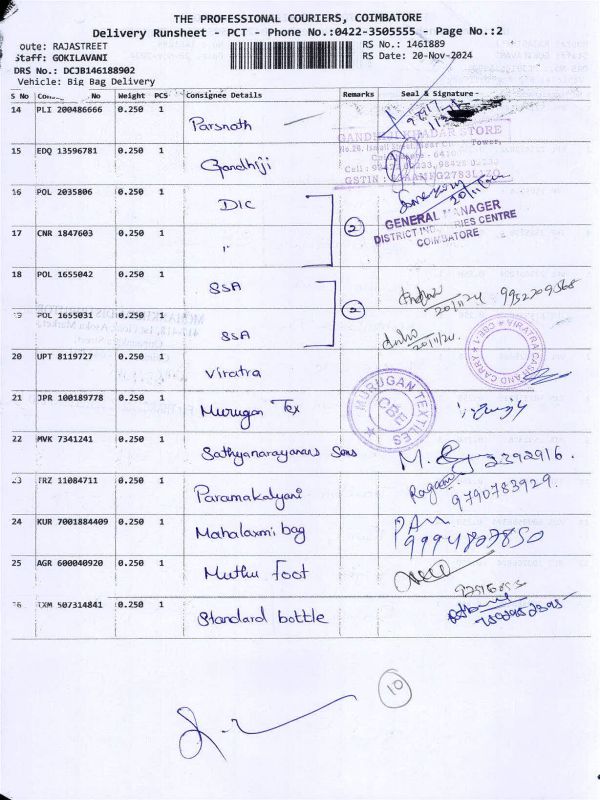 THE PROFESSIONAL COURIERS, COIMBATORE
Delivery Runsheet - PCT - Phone No.:0422-3505555 - Page No.:2
oute: RAJASTREET RS No.: 1461889
Staff: GOKILAVANI RS Date: 20-Nov-2024
DRS No.: DCJB146188902
Vehicle: Big Bag Delivery
S No No Weight PCS Consignee Details Remarks Seal & Signature
14 PLI 200486666 0.250 1 Parsnath
GANDHIJI KHADAR STORE
15 EDQ 13596781 0.250 1 Gandhiji
16 POL 2035806 0.250 1 DIC 20/11/
GENERAL MANAGER
DISTRICT INDUSTRIES CENTRE
COIMBATORE
17 CNR 1847603 0.250 1 " 2
18 POL 1655042 0.250 1 SSA 20/11/24 9952209568
19 POL 1655031 0.250 1 SSA 2 20/11/24.
20 UPT 8119727 0.250 1 Viratra
VIRATRA CASH AND CARRY CBE-1
21 JPR 100189778 0.250 1 Murugan Tex
MURUGAN TEXTILES CBE
22 MVK 7341241 0.250 1 Sathyanarayanans Sons M. 2392916.
23 TRZ 11084711 0.250 1 Paramakalyani 9790783929.
24 KUR 7001884409 0.250 1 Mahalaxmi bag 9994807850
25 AGR 600040920 0.250 1 Muthu foot
26 TXM 507314841 0.250 1 Standard bottle
10